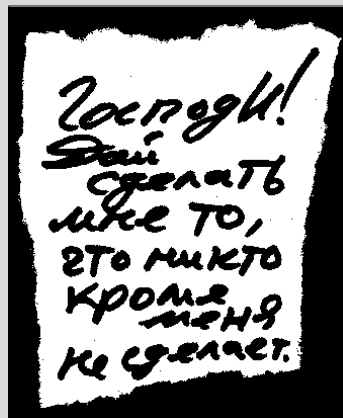 Господи!
Дай
сделать
мне то,
что никто
кроме
меня
не сделает.